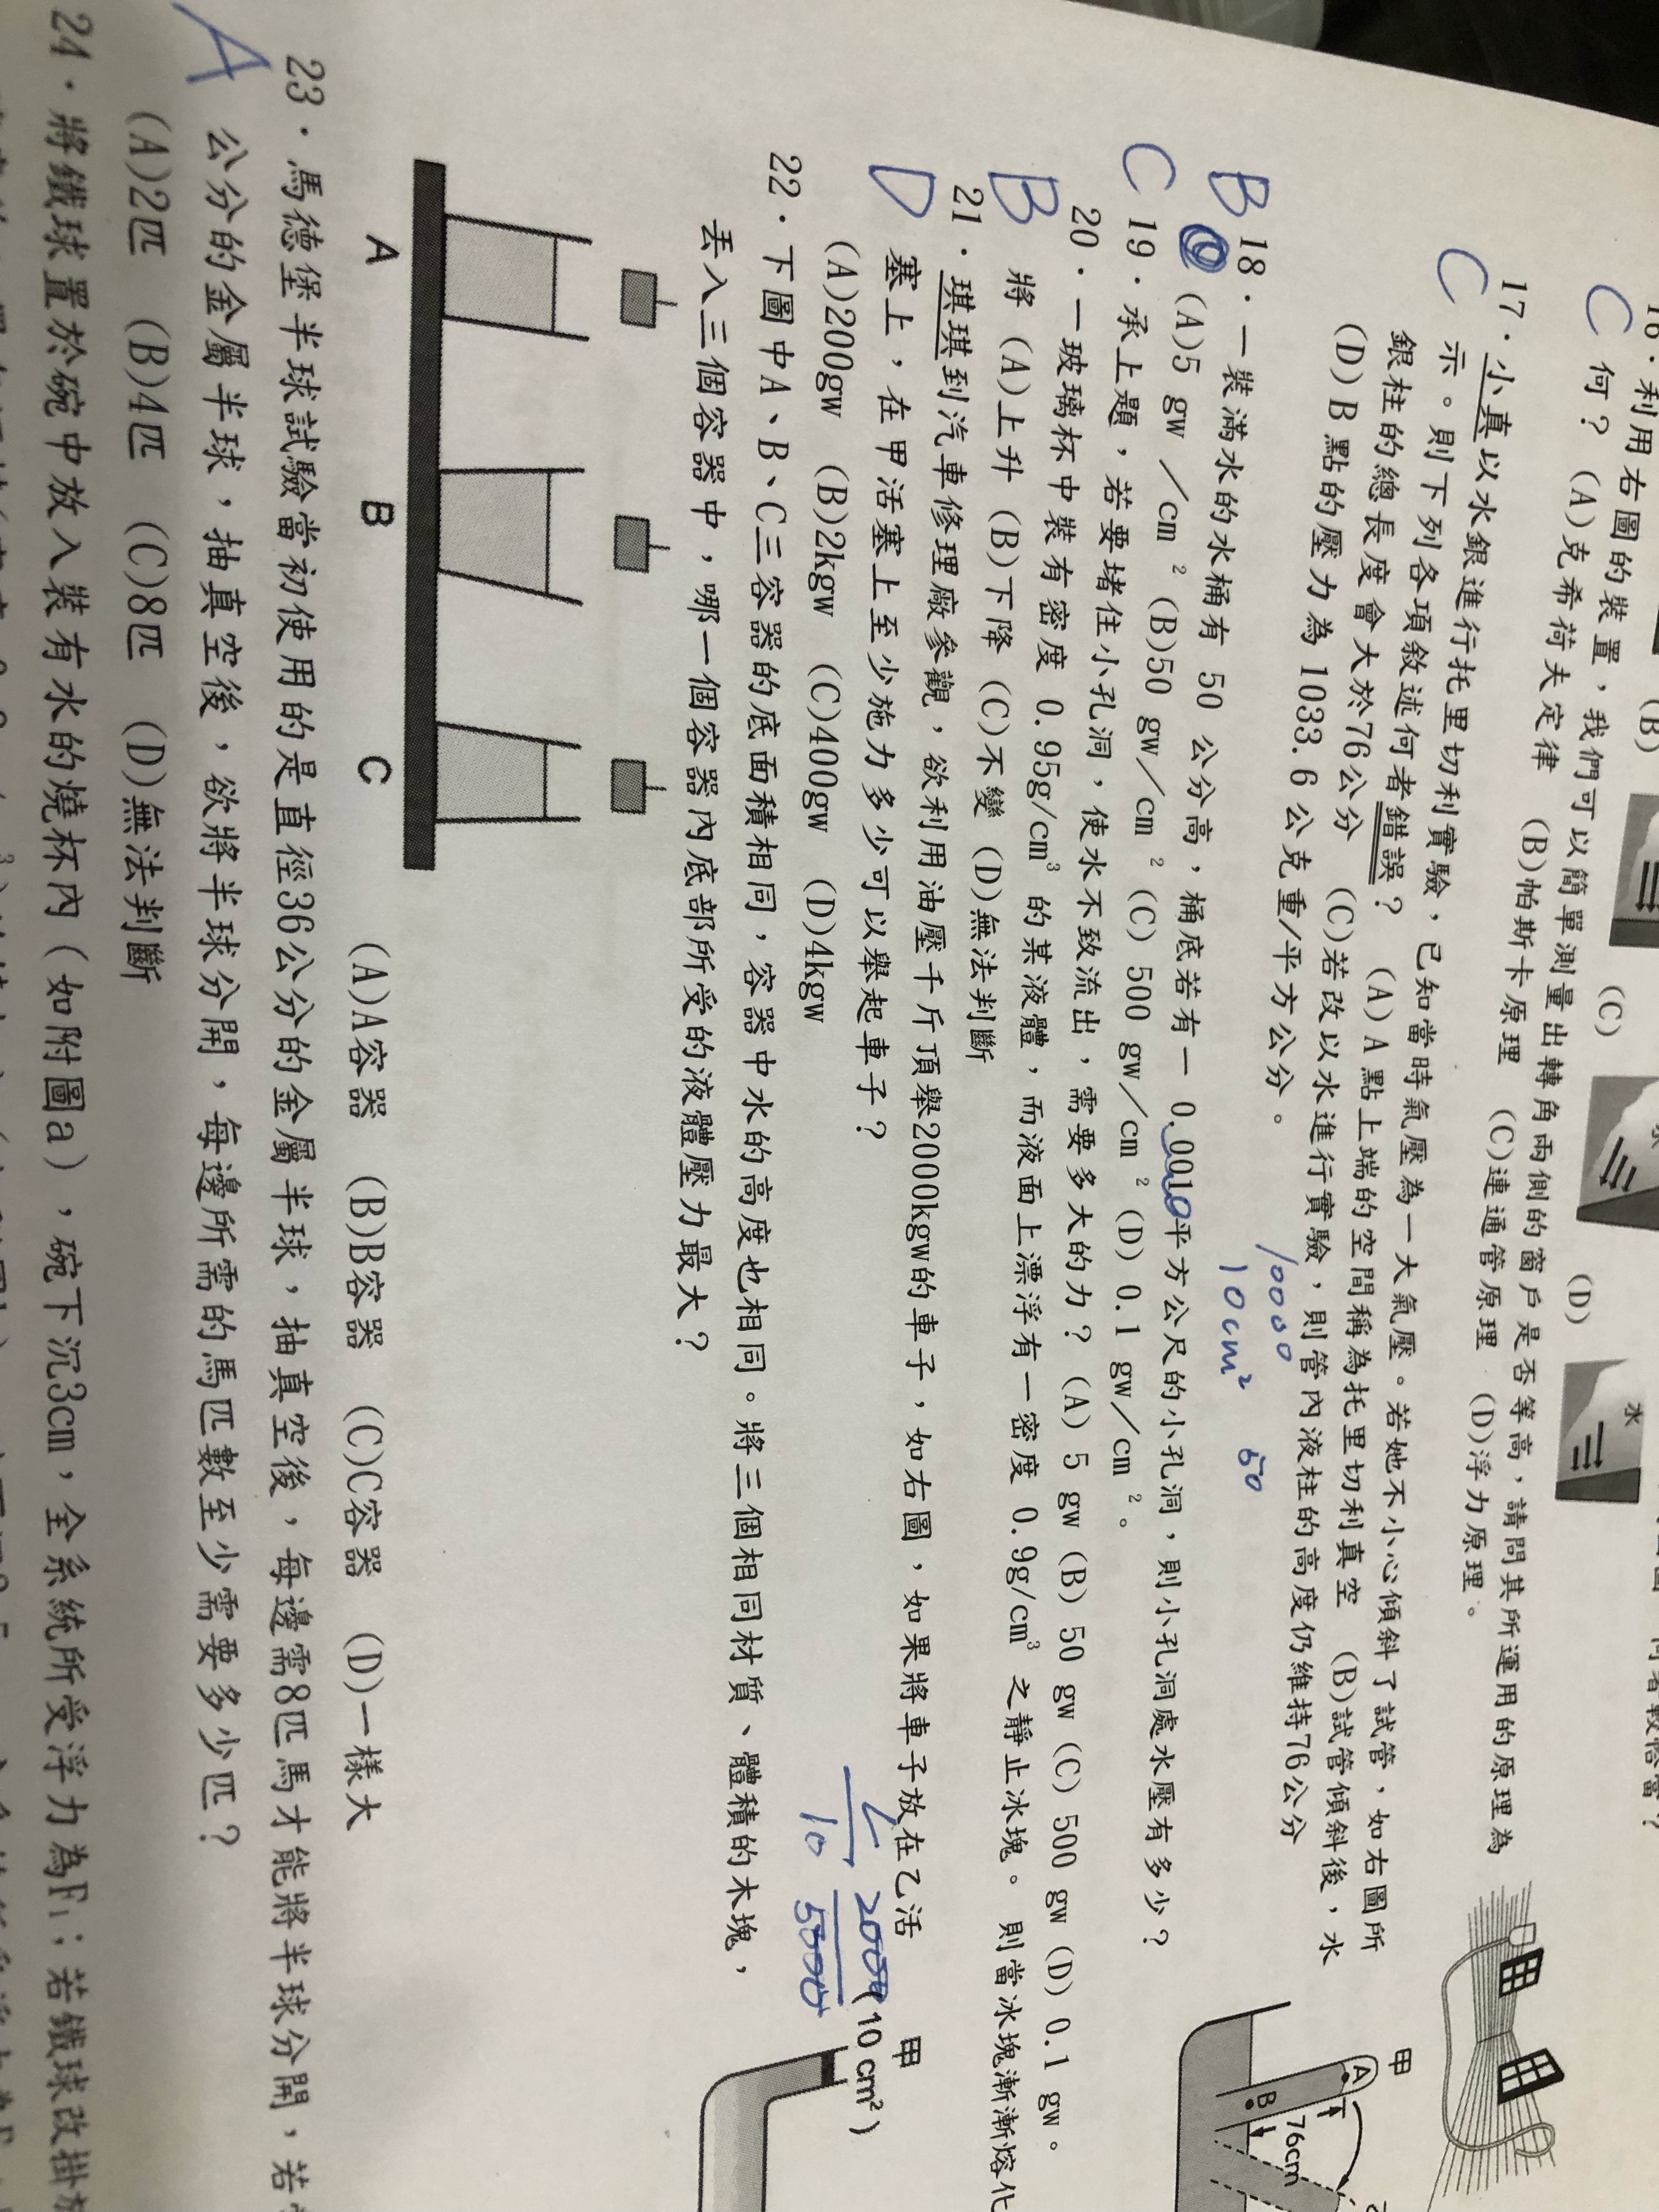 (B)
(C)
(D)
水
16.利用右圖的裝置,我們可以簡單測量出轉角兩側的窗戶是否等高,請問其所運用的原理為
C 何?(A)克希荷夫定律 (B)帕斯卡原理 (C)連通管原理 (D)浮力原理。
17.小真以水銀進行托里切利實驗,已知當時氣壓為一大氣壓。若她不小心傾斜了試管,如右圖所
C 示。則下列各項敘述何者錯誤? (A)A點上端的空間稱為托里切利真空 (B)試管傾斜後,水
銀柱的總長度會大於76公分 (C)若改以水進行實驗,則管內液柱的高度仍維持76公分
(D)B點的壓力為1033.6公克重/平方公分。
甲
A
B
76cm
10000
10cm² 50
18.一裝滿水的水桶有 50 公分高,桶底若有一 0.0010平方公尺的小孔洞,則小孔洞處水壓有多少?
B (A)5 gw /cm² (B)50 gw/cm² (C) 500 gw/cm² (D) 0.1 gw/cm²。
C 19.承上題,若要堵住小孔洞,使水不致流出,需要多大的力?(A) 5 gw (B) 50 gw (C) 500 gw (D) 0.1 gw。
20.一玻璃杯中裝有密度 0.95g/cm³ 的某液體,而液面上漂浮有一密度 0.9g/cm³ 之靜止冰塊。則當冰塊漸漸熔化
B 將 (A)上升 (B)下降 (C)不變 (D)無法判斷
21.琪琪到汽車修理廠參觀,欲利用油壓千斤頂舉2000kgw的車子,如右圖,如果將車子放在乙活
D 塞上,在甲活塞上至少施力多少可以舉起車子?
(A)200gw (B)2kgw (C)400gw (D)4kgw
甲
(10 cm²)
10
22.下圖中A、B、C三容器的底面積相同,容器中水的高度也相同。將三個相同材質、體積的木塊,
丟入三個容器中,哪一個容器內底部所受的液體壓力最大?
A B C
(A)A容器 (B)B容器 (C)C容器 (D)一樣大
23.馬德堡半球試驗當初使用的是直徑36公分的金屬半球,抽真空後,每邊需8匹馬才能將半球分開,若
A 公分的金屬半球,抽真空後,欲將半球分開,每邊所需的馬匹數至少需要多少匹?
(A)2匹 (B)4匹 (C)8匹 (D)無法判斷
24.將鐵球置於碗中放入裝有水的燒杯內(如附圖a),碗下沉3cm,全系統所受浮力為F₁;若鐵球改掛於